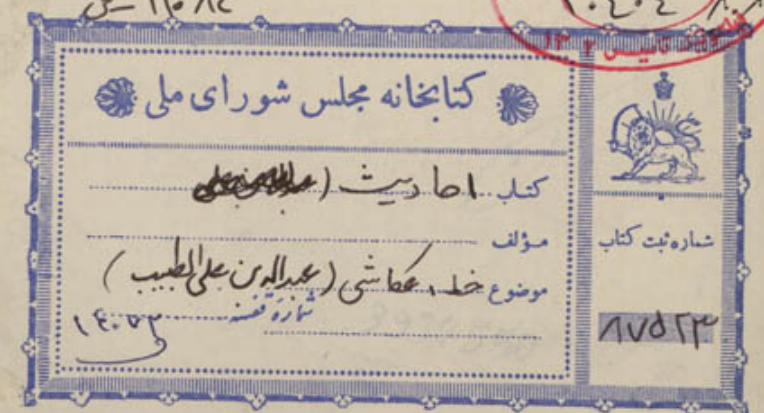 کتابخانه مجلس شورای ملی
کتاب احادیث (
مؤلف
موضوع خط، عکاشی (عبدالله بن علی الطبیب)
شماره قفسه
۱۴۰۷۳
شماره ثبت کتاب
۸۷۵۲۳